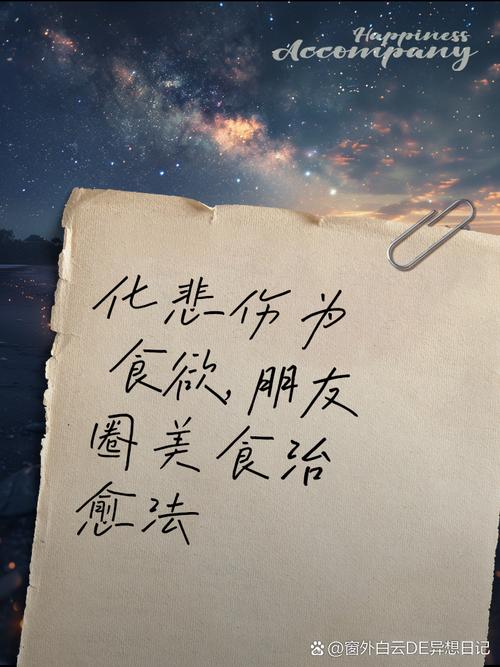 Happiness
Accompany
化悲伤为
食欲,朋友
圈美食治
愈法
@窗外白云DE异想日记